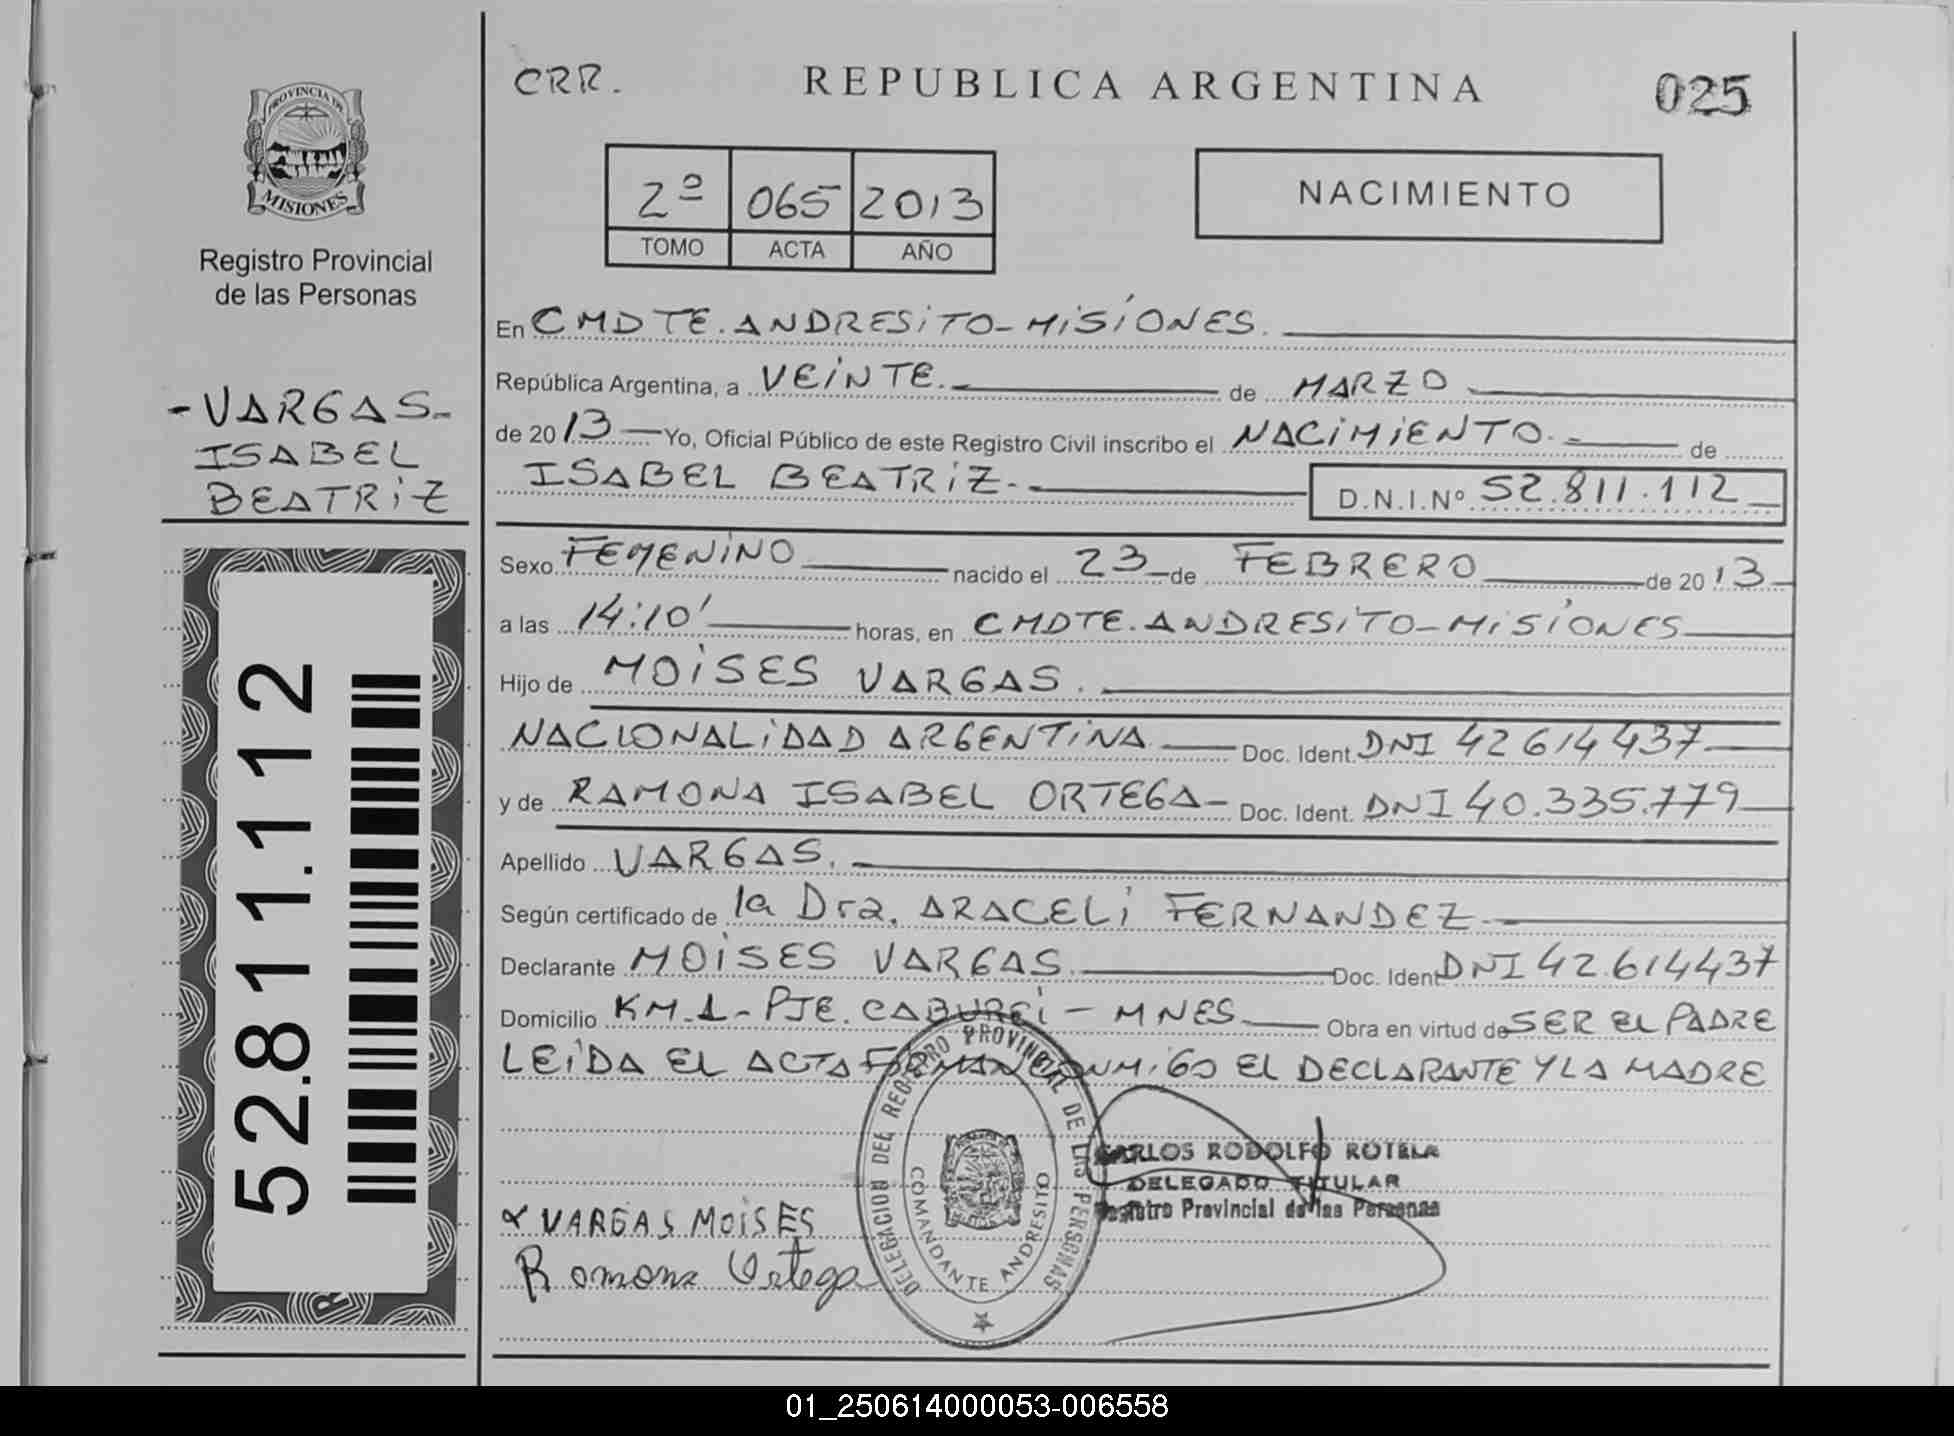 CRR.
REPUBLICA ARGENTINA
025
PROVINCIA DE
MISIONES
Registro Provincial
de las Personas
2º 065 2013
TOMO ACTA AÑO
NACIMIENTO
- VARGAS-
ISABEL
BEATRIZ
52.811.112
En CMDTE. ANDRESITO - MISIONES.
República Argentina, a VEINTE. de MARZO
de 2013 Yo, Oficial Público de este Registro Civil inscribo el NACIMIENTO.- de
ISABEL BEATRIZ.- D.N.I.Nº 52.811.112
Sexo FEMENINO nacido el 23 de FEBRERO de 2013
a las 14:10' horas, en CMDTE. ANDRESITO - MISIONES
Hijo de MOISES VARGAS.
NACIONALIDAD ARGENTINA Doc. Ident. DNI 42614437
y de RAMONA ISABEL ORTEGA- Doc. Ident. DNI 40.335.779
Apellido VARGAS.
Según certificado de la Dra. ARACELI FERNANDEZ
Declarante MOISES VARGAS. Doc. Ident DNI 42.614437
Domicilio KM.1- PJE. CABUREI - MNES Obra en virtud de SER EL PADRE
LEIDA EL ACTA FIRMAN CONMIGO EL DECLARANTE Y LA MADRE
DELEGACION DEL REGISTRO PROVINCIAL DE LAS PERSONAS
COMANDANTE ANDRESITO
CARLOS RODOLFO ROTELA
DELEGADO TITULAR
Registro Provincial de las Personas
x VARGAS MOISES
Ramona Ortega
01_250614000053-006558